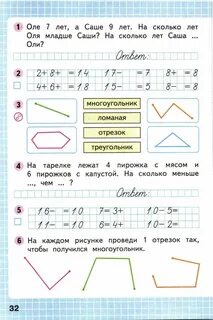 1 Оле 7 лет, а Саше 9 лет. На сколько лет
Оля младше Саши? На сколько лет Саша ...
Оли?
Ответ:
2 2+8+ =14 15- =7 8+ =8
11- =2 17- =8 8- =8
3 многоугольник
ломаная
отрезок
треугольник
4 На тарелке лежат 4 пирожка с мясом и
6 пирожков с капустой. На сколько меньше
..., чем ... ?
Ответ:
5 16- =10 7=3+ 10-5=
11- =10 6=4+ 10-2=
6 На каждом рисунке проведи 1 отрезок так,
чтобы получился многоугольник.
32